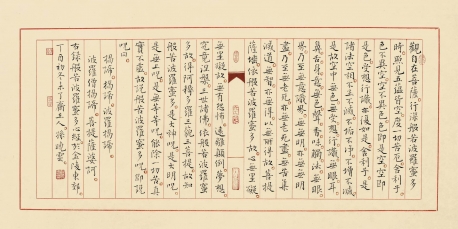 觀自在菩薩行深般若波羅蜜多
時照見五蘊皆空度一切苦厄舍利子
色不異空空不異色色即是空空即
是色受想行識亦復如是舍利子是
諸法空相不生不滅不垢不淨不增不減
是故空中無色無受想行識無眼耳
鼻舌身意無色聲香味觸法無眼
界乃至無意識界無無明亦無無明
盡乃至無老死亦無老死盡無苦集
滅道無智亦無得以無所得故菩提
薩埵依般若波羅蜜多故心無罣礙
無罣礙故無有恐怖遠離顛倒夢想
究竟涅槃三世諸佛依般若波羅蜜
多故得阿耨多羅三藐三菩提故知
般若波羅蜜多是大神咒是大明咒
是無上咒是無等等咒能除一切苦真
實不虛故說般若波羅蜜多咒即說
咒曰
揭諦揭諦波羅揭諦
波羅僧揭諦菩提薩婆訶
古錄般若波羅蜜多心經於金陵東郊
丁酉初冬
孫曉雲